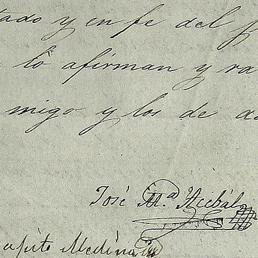 tado y en fe del
lo afirman y ra
migo y los de a
José Mª Acebal
apito Medina